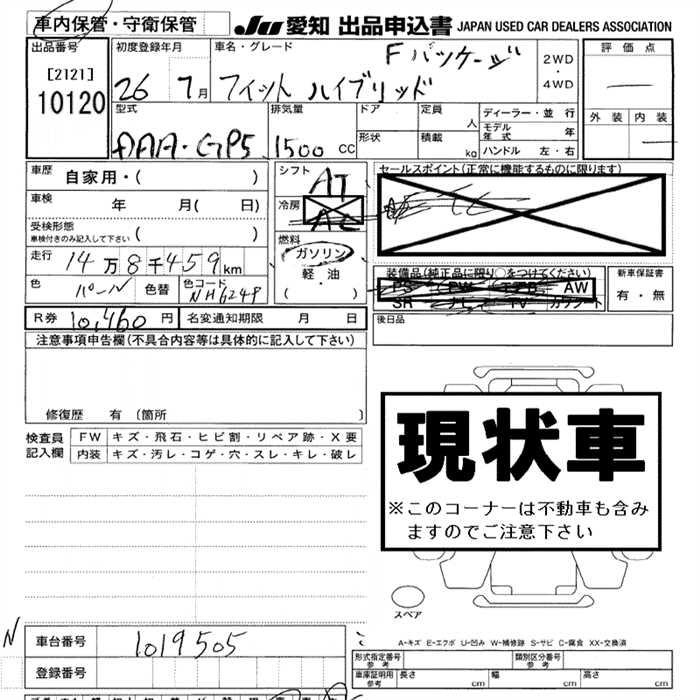 車内保管・守衛保管 JU 愛知 出品申込書 JAPAN USED CAR DEALERS ASSOCIATION
出品番号 初度登録年月 車名・グレード Fパッケージ 2WD・4WD 評価点
[2121] 26 7月 フィット ハイブリッド
10120
型式 排気量 ドア 定員 人 ディーラー・並行 外装 内装
DAA・GP5 1500 cc 形状 積載 kg モデル年式 年
ハンドル 左・右
車歴 自家用・( ) シフト AT セールスポイント(正常に機能するものに限ります)
車検 年 月( 日) 冷房 AC
受検形態 車検付きのみ記入して下さい ( ) 燃料
走行 14万8千459km ガソリン 装備品(純正品に限り○をつけてください) 新車保証書
軽・油 PS PW エアB AW 有・無
色 パール 色替 色コード NH624P ( ) SR ナビ TV カワシート
R券 10,460円 名変通知期限 月 日 後日品
注意事項申告欄(不具合内容等は具体的に記入して下さい)
修復歴 有(箇所 )
検査員記入欄 FW キズ・飛石・ヒビ割・リペア跡・X要
内装 キズ・汚レ・コゲ・穴・スレ・キレ・破レ
現状車
※このコーナーは不動車も含み
ますのでご注意下さい
スペア
A-キズ E-エクボ U-凹み W-補修跡 S-サビ C-腐食 XX-交換済
N 車台番号 1019505
登録番号
形式指定番号 参考 類別区分番号 参考
車庫証明用 参考 長さ cm 幅 cm 高さ cm